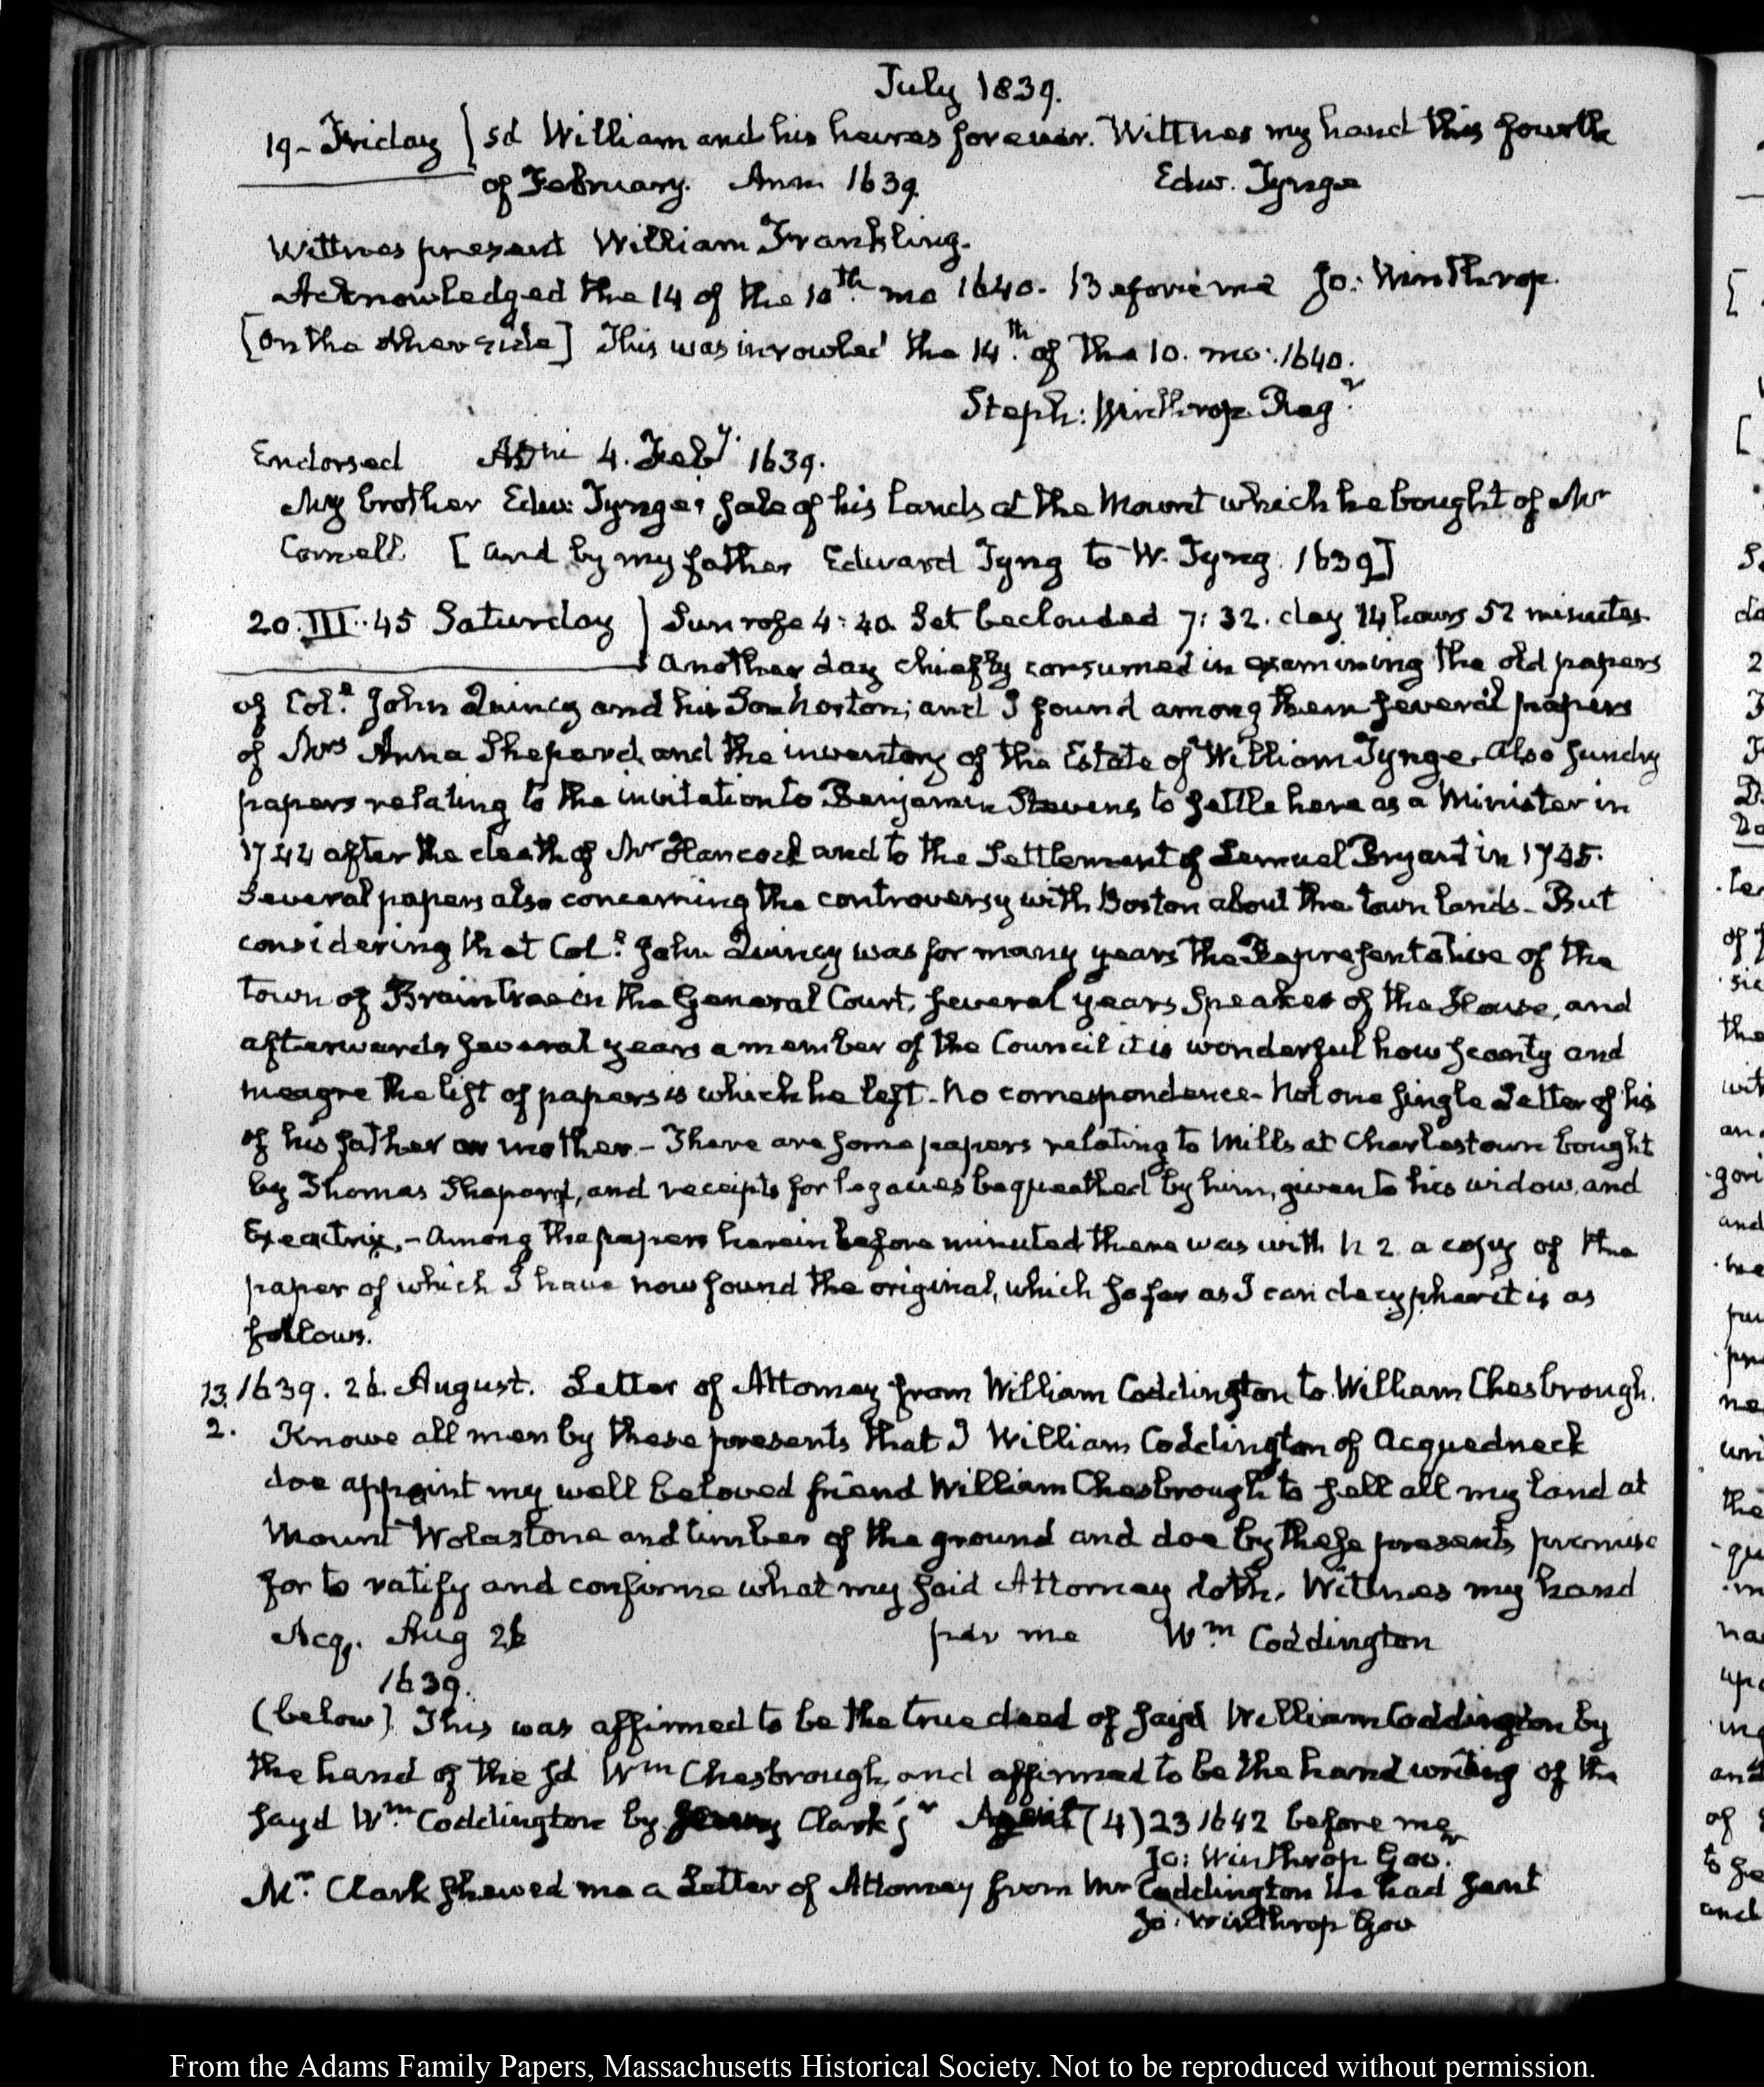 July 1839.
19 - Friday } sd William and his heires forever. Wittnes my hand this fourth
of February. Ann. 1639. Edw. Tynge
Wittnes present William Frankling.
Acknowledged the 14 of the 10th. mo 1640. Before me Jo: Winthrop.
[On the other side] This was inrowled the 14th. of the 10. mo: 1640.
Steph: Winthrop Regr.
Endorsed 4. Feby. 1639.
My brother Edw: Tynges sale of his lands at the Mount which he bought of Mr
Cornell [and by my father Edward Tyng to W. Tyng. 1639]
20. III..45 Saturday } Sun rose 4:40. Set beclouded 7:32. day 14 hours 52 minutes.
Another day chiefly consumed in examining the old papers
of Col.l John Quincy and his Son Norton; and I found among them several papers
of Mrs Anna Shepard, and the inventory of the Estate of William Tynge. Also sundry
papers relating to the invitation to Benjamin Stevens to settle here as a Minister in
1744 after the death of Mr Hancock and to the Settlement of Lemuel Bryant in 1745.
Several papers also concerning the controversy with Boston about the town lands. But
considering that Col.l John Quincy was for many years the Representative of the
town of Braintree in the General Court, several years Speaker of the House, and
afterwards several years a member of the Council it is wonderful how scanty and
meagre the list of papers is which he left. No correspondence. Not one single Letter of his
of his father or mother. - There are some papers relating to Mills at Charlestown bought
by Thomas Shepard, and receipts for legacies bequeathed by him, given to his widow and
Executrix. - Among the papers herein before minuted there was with N 2 a copy of the
paper of which I have now found the original, which so far as I can decypher it is as
follows.
13. 1639. 26. August. Letter of Attorney from William Coddington to William Chesbrough.
2. Knowe all men by these presents that I William Coddington of Acquedneck
doe appoint my well beloved friend William Chesbrough to sell all my land at
Mount Wolastone and timber of the ground and doe by these presents promise
for to ratify and confirme what my said Attorney doth. Wittnes my hand
Acq. Aug 26 per me Wm Coddington
1639.
(below) This was affirmed to be the true deed of sayd William Coddington by
the hand of the sd Wm Chesbrough, and affirmed to be the hand writing of the
sayd Wm. Coddington by Clark jr (4) 23 1642 before me
Jo: Winthrop Gov.
Mr. Clark shewed me a Letter of Attorney from Mr Coddington he had sent
Jo: Winthrop Gov
From the Adams Family Papers, Massachusetts Historical Society. Not to be reproduced without permission.